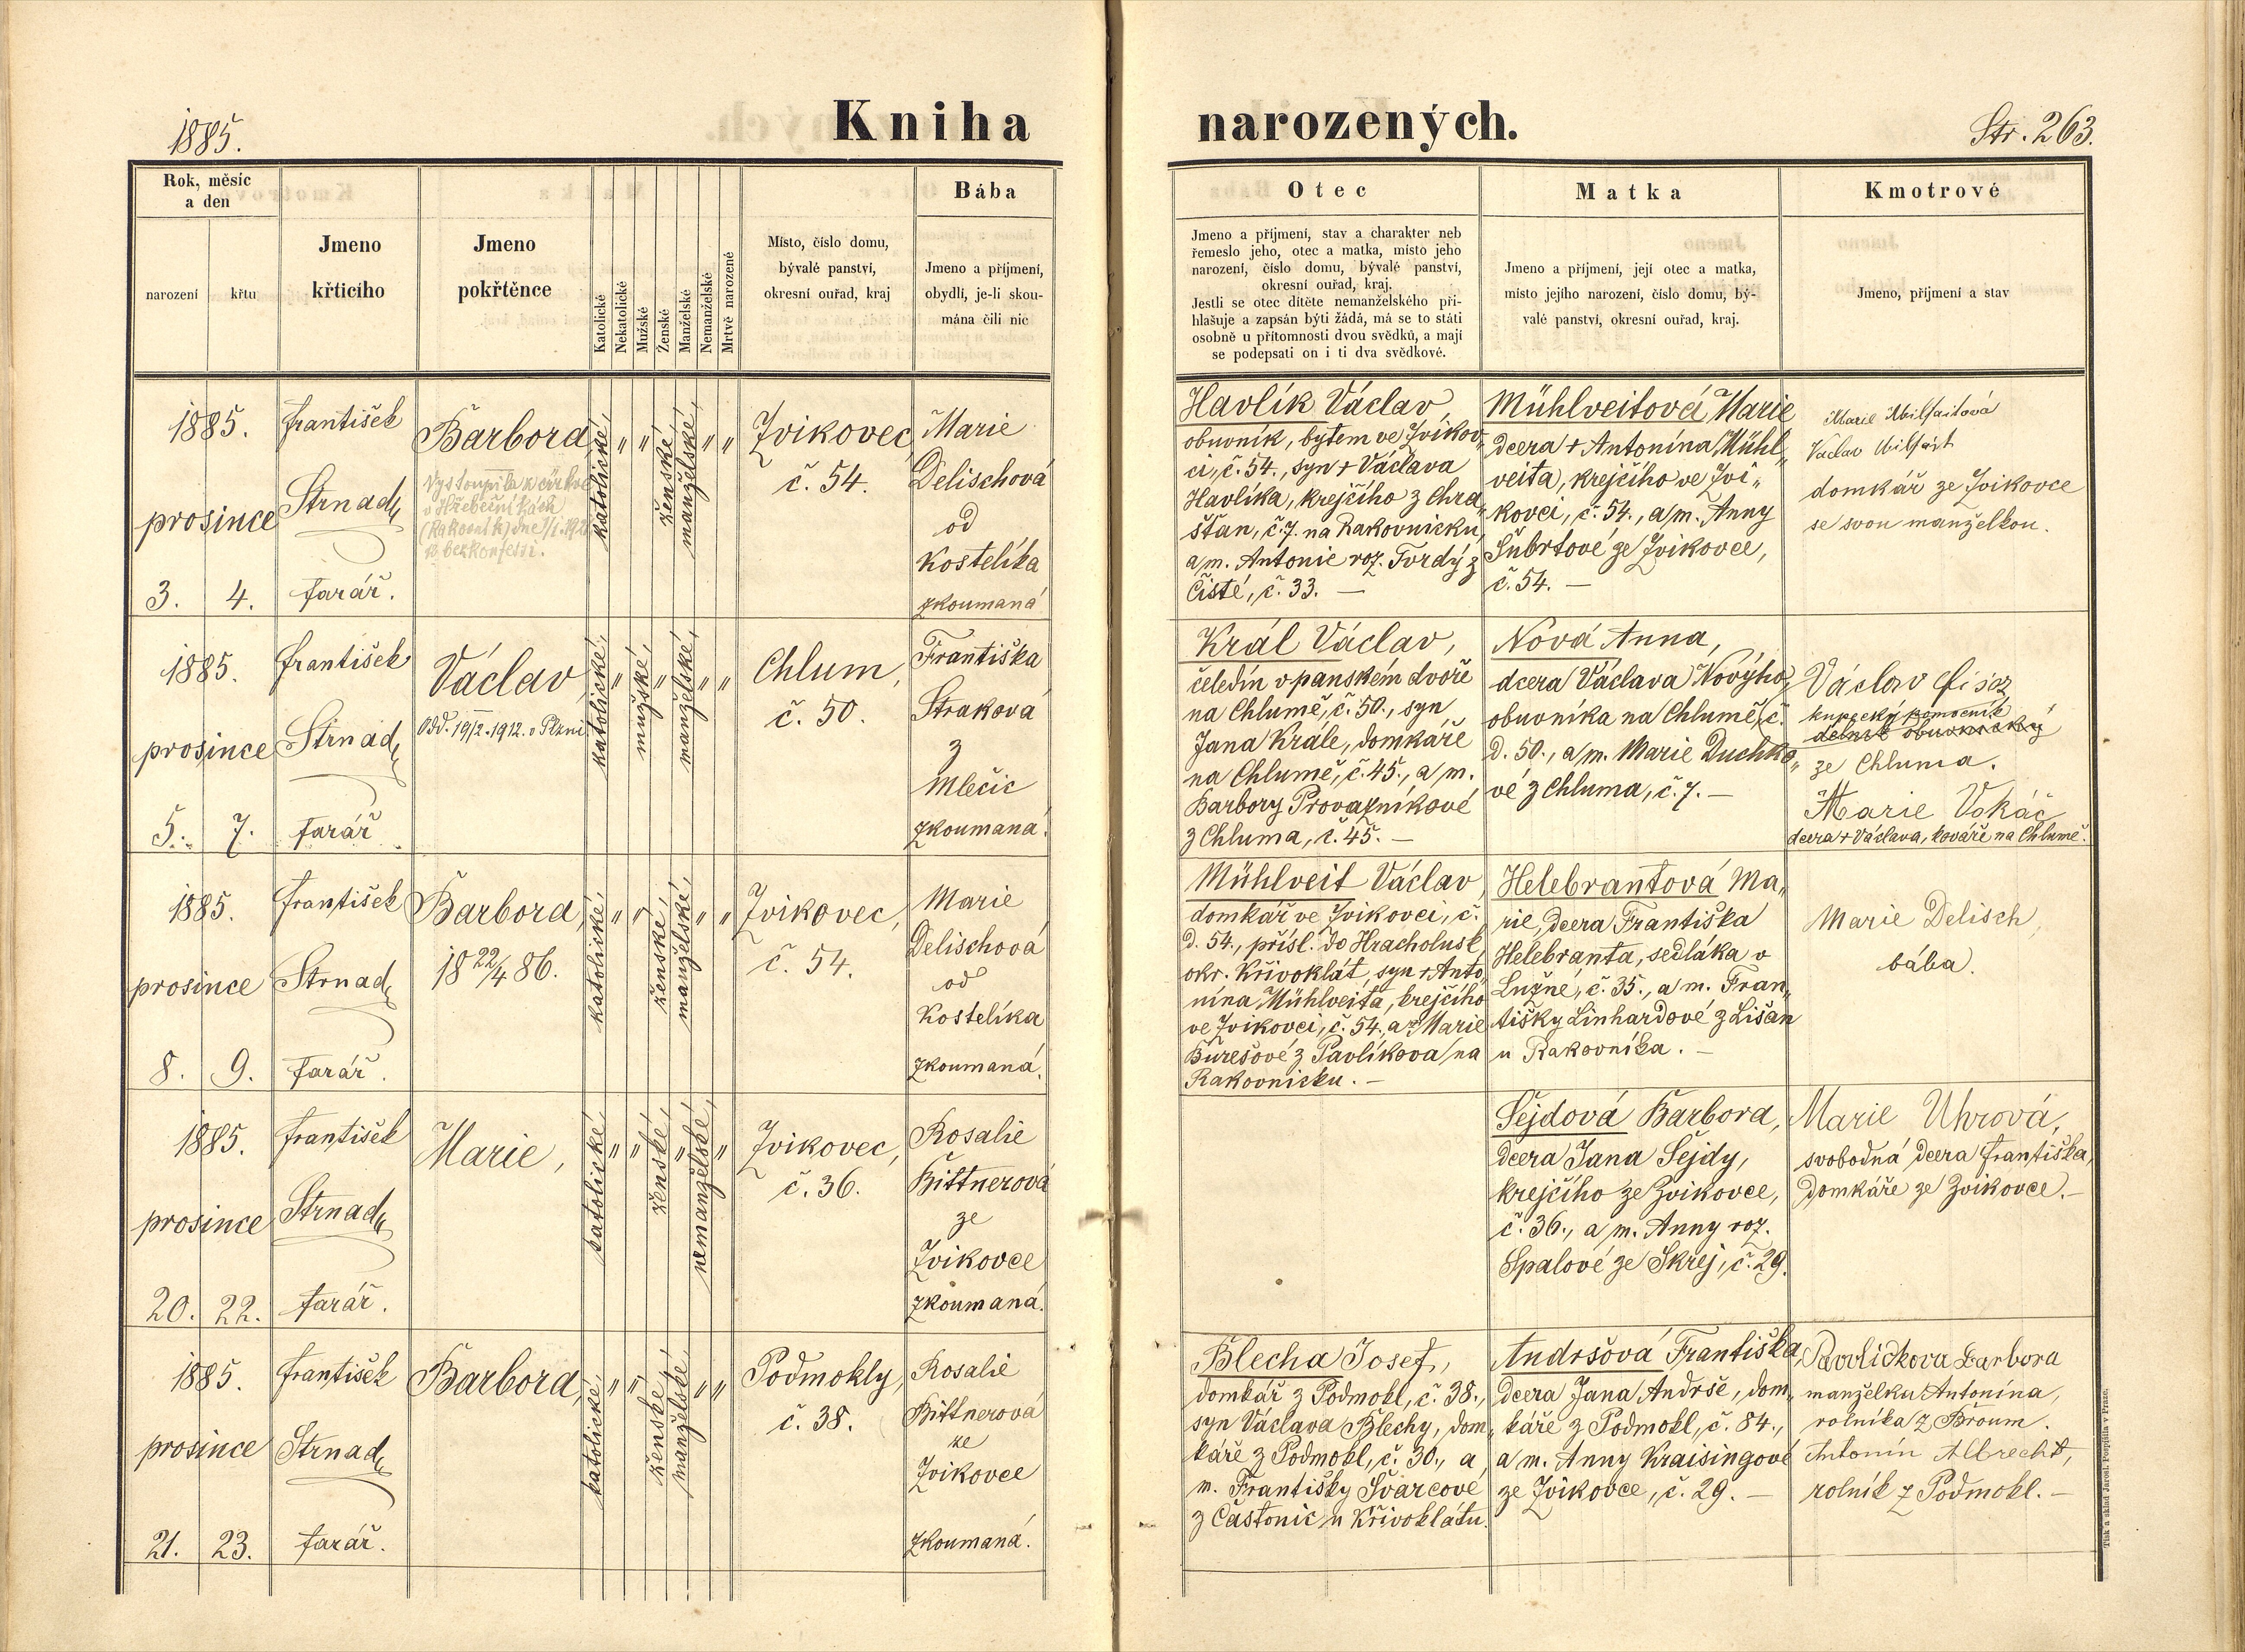 1885.
Kniha narozených.
Str. 263.
Rok, měsíc
a den
narození
křtu
Jmeno
křticího
Jmeno
pokřtěnce
Katolické
Nekatolické
Mužské
Ženské
Manželské
Nemanželské
Mrtvě narozené
Místo, číslo domu,
bývalé panství,
okresní ouřad, kraj
Bába
Jmeno a příjmení,
obydlí, je-li skou-
mána čili nic
Otec
Jmeno a příjmení, stav a charakter neb
řemeslo jeho, otec a matka, místo jeho
narození, číslo domu, bývalé panství,
okresní ouřad, kraj.
Jestli se otec dítěte nemanželského při-
hlašuje a zapsán býti žádá, má se to státi
osobně u přítomnosti dvou svědků, a mají
se podepsati on i ti dva svědkové.
Matka
Jmeno a příjmení, její otec a matka,
místo jejího narození, číslo domu, bý-
valé panství, okresní ouřad, kraj.
Kmotrové
Jmeno, příjmení a stav
1885.
prosince
3. 4.
František
Strnad,
farář.
Barbora,
Vystoupila z církve
v Hřebečníkách
(Rakovník) dne
k bezkonfessi.
katolické,
„
„
ženské,
manželské,
„
„
Zvikovec,
č. 54.
Marie
Delischová
od
Kostelíka
zkoumaná
Havlík Václav,
obuvník, bytem ve Zvikov„
ci, č. 54., syn + Václava
Havlíka, krejčího z Chra„
šťan, č. 7. na Rakovnicku,
a m. Antonie roz. Tvrdý z
Čisté, č. 33. —
Mühlveitová Marie
dcera + Antonína Mühl„
veita, krejčího ve Zvi„
kovci, č. 54., a m. Anny
Šubrtové ze Zvikovce,
č. 54. —
Marie Milfaitová
Václav Milfait
domkář ze Zvikovce
se svou manželkou.
1885.
prosince
5. 7.
František
Strnad,
farář
Václav,
Odd. 19/2. 1912. v Plzni
katolické,
„
mužské,
„
manželské,
„
„
Chlum,
č. 50.
Františka
Straková
z
Mlečic
zkoumaná.
Král Václav,
čeledín v panském dvoře
na Chlumě, č. 50., syn
Jana Krále, domkáře
na Chlumě, č. 45., a m.
Barbory Provazníkové
z Chluma, č. 45. —
Nová Anna,
dcera Václava Nového,
obuvníka na Chlumě, č.
d. 50., a m. Marie Duchko„
vé z Chluma, č. 7. —
Václav
kupecký pomocník
dělník obuvnický
ze Chluma.
Marie Vokáč
dcera + Václava, kováře na Chlumě.
1885.
prosince
8. 9.
František
Strnad,
farář.
Barbora,
18 22/4 86.
katolické,
„
„
ženské,
manželské,
„
„
Zvikovec,
č. 54.
Marie
Delischová
od
Kostelíka
zkoumaná.
Mühlveit Václav,
domkář ve Zvikovci, č.
d. 54., přísl. do Hracholusk
okr. Křivoklát, syn + Anto„
nína Mühlveita, krejčího
ve Zvikovci, č. 54., a m. Marie
Burešové z Pavlíkova na
Rakovnicku. —
Helebrantová Ma„
rie, dcera Františka
Helebranta, sedláka v
Lužné, č. 35., a m. Fran„
tišky Linhardové z Lišan
u Rakovníka. —
Marie Delisch,
bába.
1885.
prosince
20. 22.
František
Strnad,
farář.
Marie,
katolické,
„
„
ženské,
„
nemanželské,
„
Zvikovec,
č. 36.
Rosalie
Bittnerová
ze
Zvikovce
zkoumaná.
Šejdová Barbora,
dcera Jana Šejdy,
krejčího ze Zvikovce,
č. 36., a m. Anny roz.
Spalové ze Skrej, č. 29.
Marie Uhrová,
svobodná dcera Františka,
domkáře ze Zvikovce. —
1885.
prosince
21. 23.
František
Strnad,
farář.
Barbora,
katolické,
„
„
ženské,
manželské,
„
„
Podmokly,
č. 38.
Rosalie
Bittnerová
ze
Zvikovce
zkoumaná.
Blecha Josef,
domkář z Podmokl, č. 38.,
syn Václava Blechy, dom„
káře z Podmokl, č. 30., a
m. Františky Švarcové
z Častonic u Křivoklátu.
Andršová Františka,
dcera Jana Andrše, dom„
káře z Podmokl, č. 84.,
a m. Anny Kraisingové
ze Zvikovce, č. 29. —
Pavlíčkova Barbora
manželku Antonína,
rolníka z Broum.
Antonín Albrecht,
rolník z Podmokl. —
Tisk a sklad Jarosl. Pospíšila v Praze.